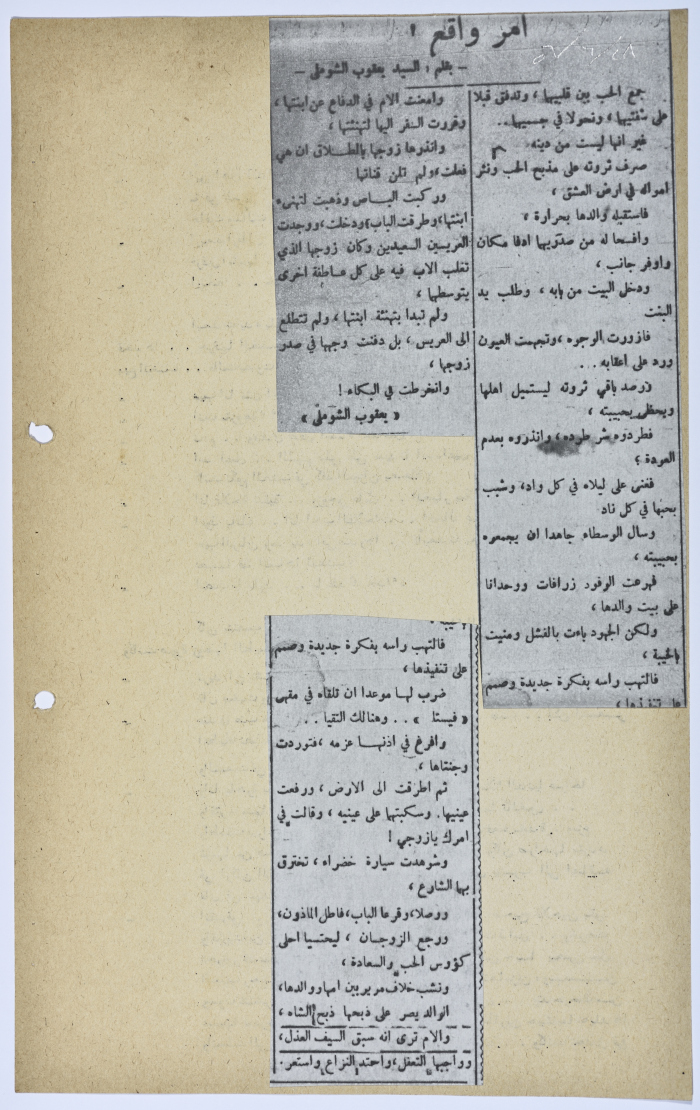 امر واقع !
– بقلم : السيد يعقوب الشوملي –
جمع الحب بين قلبيهما ، وتدفق قبلا
على شفتيهما ، ونحولا في جسميهما . .
غير انها ليست من دينه
صرف ثروته على مذبح الحب ونثر
امواله في ارض العشق ،
فاستقبله والدها بحرارة ،
وافسحا له من صدريهما ادفا مكان
واوفر جانب ،
ودخل البيت من بابه ، وطلب يد
البنت
فازورت الوجوه ، وتجهمت العيون
ورد على اعقابه . . .
ورصد باقي ثروته ليستميل اهلها
ويحظى بحبيبته ،
فطردوه شر طرده ، وانذروه بعدم
العودة ؟
فغنى على ليلاه في كل واد ، وشبب
بحبها في كل ناد
وسال الوسطاء جاهدا ان يجمعوه
بحبيبته ،
فهرعت الوفود زرافات ووحدانا
على بيت والدها ،
ولكن الجهود باءت بالفشل ومنيت
بالخيبة ،
فالتهب راسه بفكرة جديدة وصمم
على تنفيذها ،
فالتهب راسه بفكرة جديدة وصمم
على تنفيذها ،
ضرب لها موعدا ان تلقاه في مقهى
« فيستا » . . وهنالك التقيا . .
وافرغ في اذنهـا عزمه ، فتوردت
وجنتاها ،
ثم اطرقت الى الارض ، ورفعت
عينيها . وسكبتها على عينيه ، وقالت في
امرك يازوجي !
وشوهدت سيارة خضراء ، تخترق
بها الشارع ،
ووصلا ، وقرعا الباب ، فاطل الماذون ،
ورجع الزوجـان ، ليحتسيا احلى
كؤوس الحب والسعادة ،
ونشب خلاف مرير بين امها ووالدها ،
الوالد يصر على ذبحها ذبح الشاه ،
والام ترى انه سبق السيف العذل ،
وواجبها التعقل ، واحتد النزاع واستعر .
وامعنت الام في الدفاع عن ابنتها ،
وقررت السفر اليها لتهنئتها ،
وانذرها زوجها بالطـلاق ان هي
فعلت ، ولم تلن قناتها
وركبت البـاص وذهبت لتهنىء
ابنتها ، وطرقت الباب ، ودخلت ، ووجدت
العريسين السعيدين وكان زوجها الذي
تغلب الاب فيه على كل عـاطفة اخرى
يتوسطهما ،
ولم تبدا بتهنئة ابنتها ، ولم تتطلع
الى العريس ، بل دفنت وجهها في صدر
زوجها ،
وانخرطت في البكاء !
« يعقوب الشوملي »